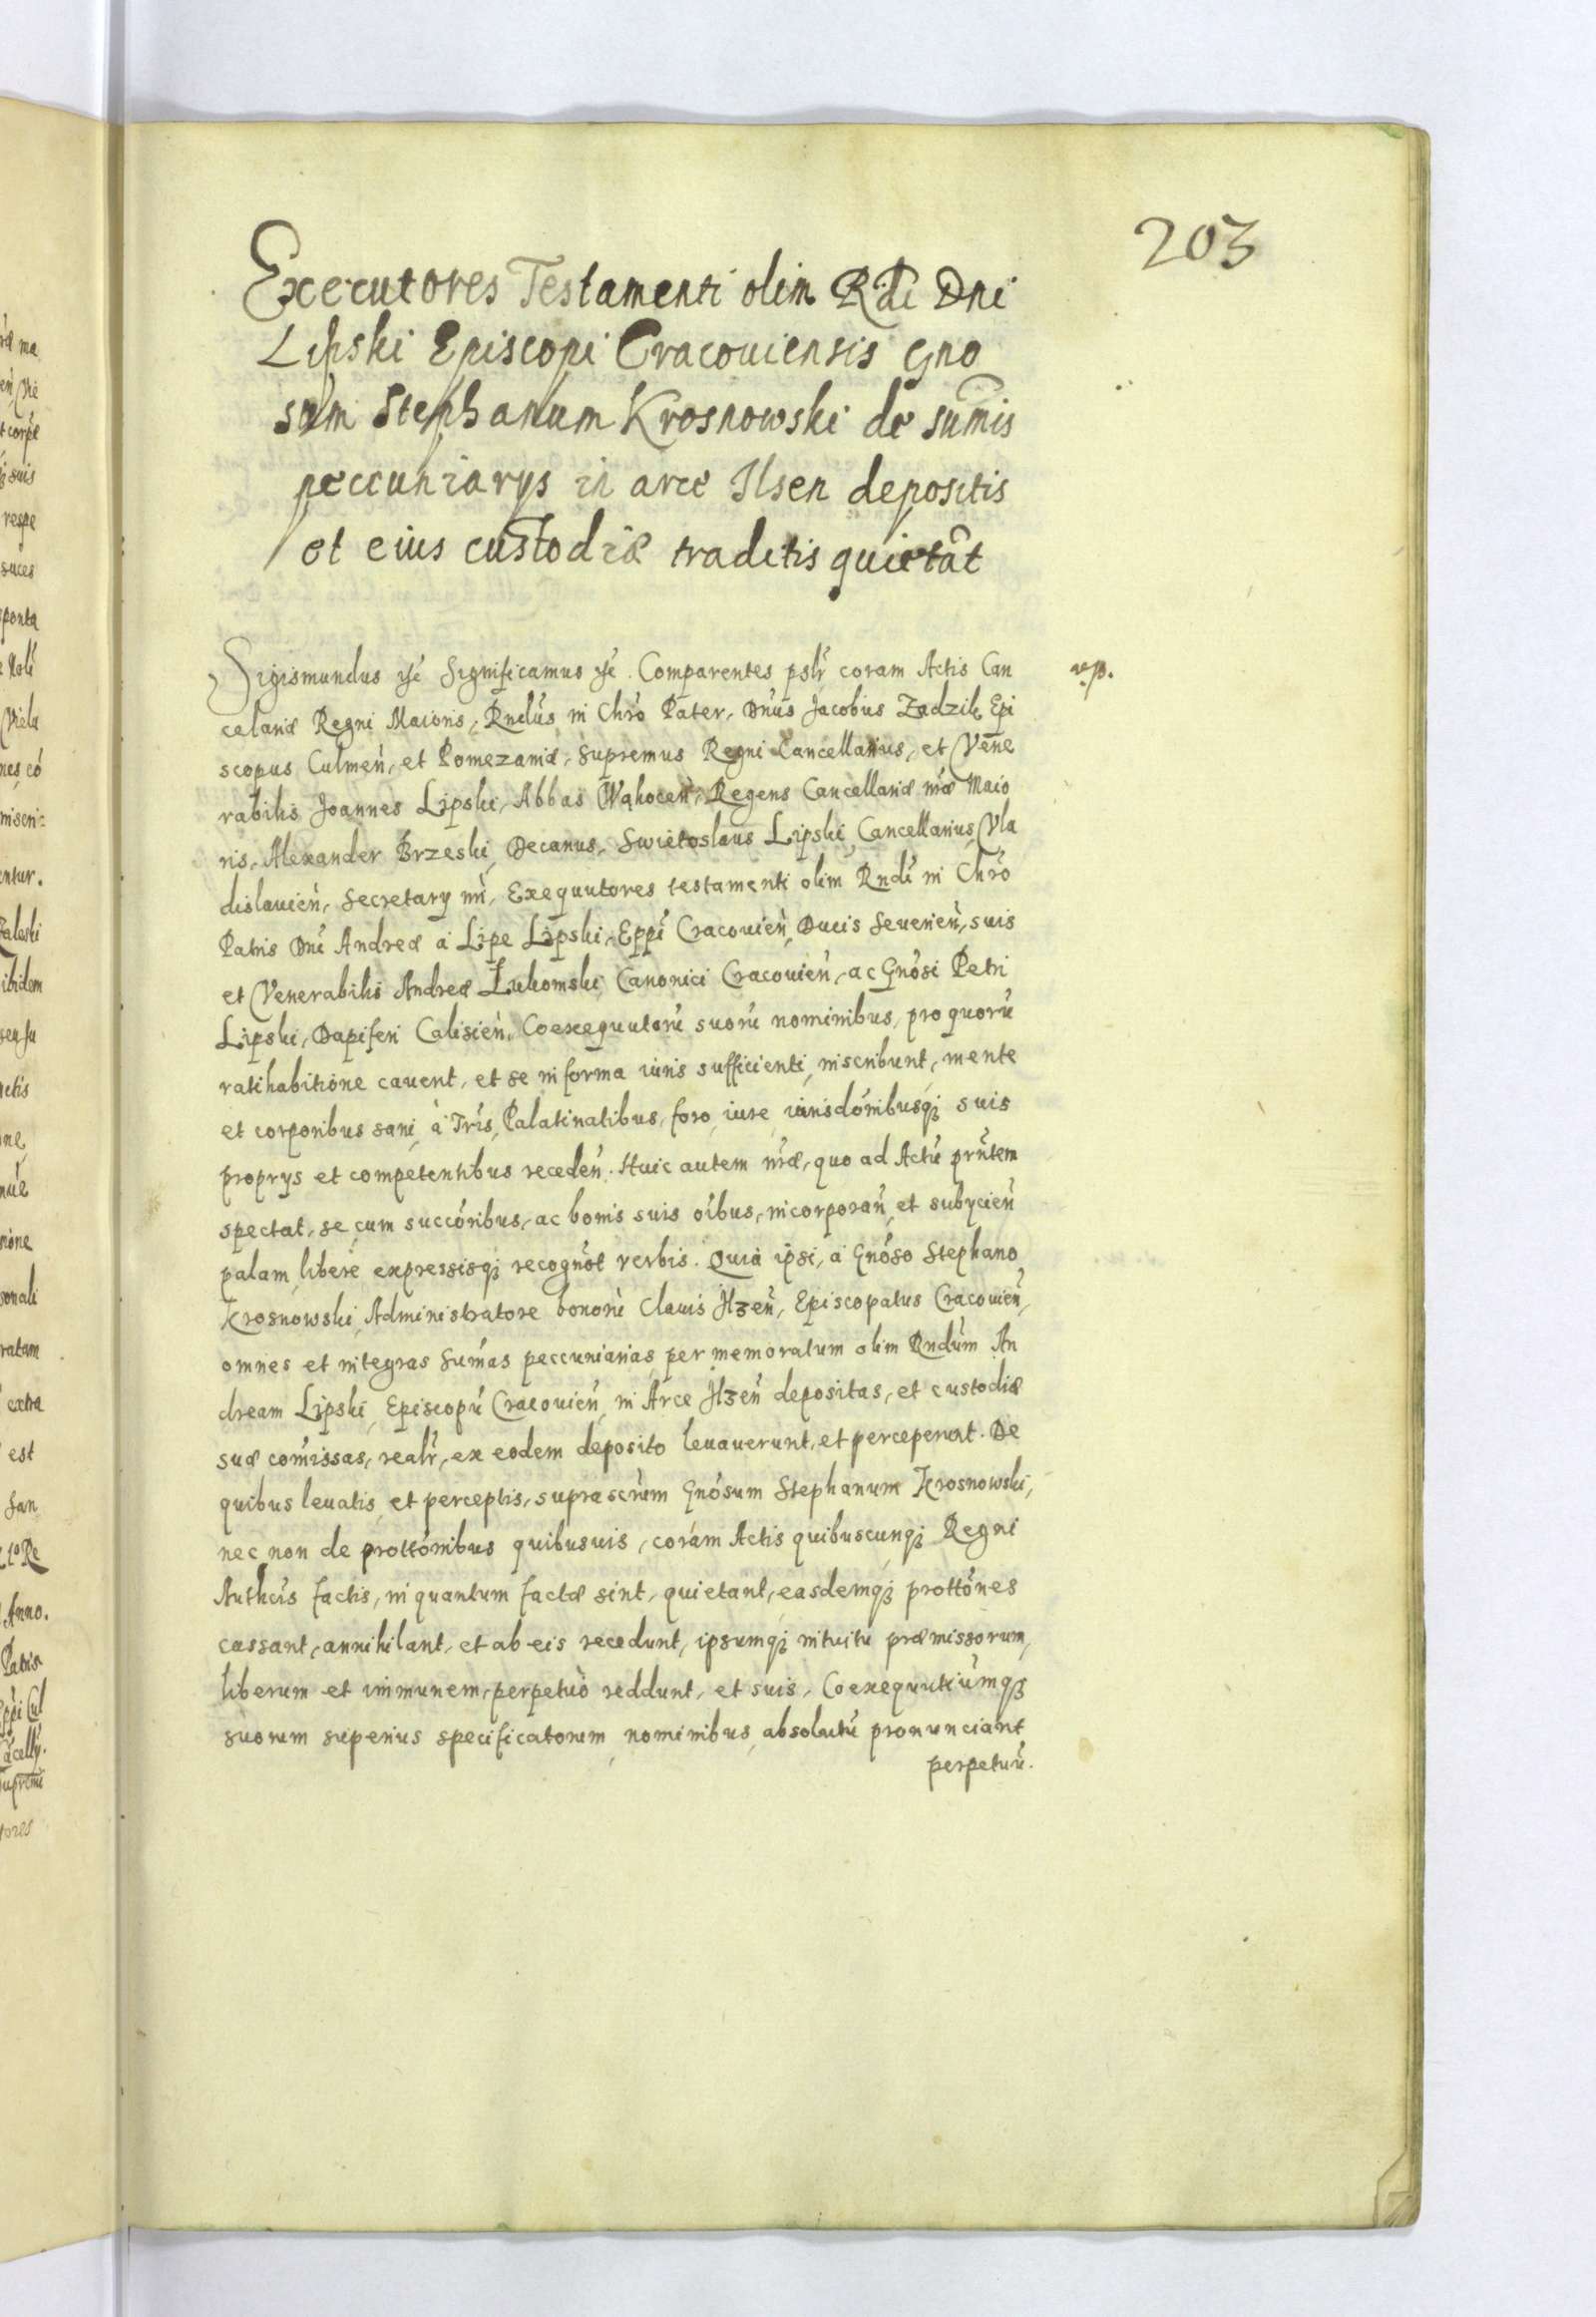 203
Executores Testamenti olim Rdi Dni
Lipski Episcopi Cracouiensis Gno
sum Stephanum Krosnowski de sum̄is
peccuniarys in arce Ilsen depositis
et eius custodiæ traditis quietāt
Sigismundus &c̃ Significamus &c̃. Comparentes pslr̃ coram Actis Can
celariæ Regni Maioris, Rndus in Chro Pater, Dnus Jacobus Zadzik Epi
scopus Culmeñ, et Pomezaniæ, Supremus Regni Cancellarius, et Vene
rabilis Joannes Lipski, Abbas Wąhoceñ, Regens Cancellariæ nræ Maio
ris, Alexander Brzeski, Decanus, Swietoslaus Lipski, Cancellarius Vla
dislauieñ, Secretary nri, Exequutores testamenti olim Rndi in Chro
Patris Dni Andreæ à Lipe Lipski, Eppi Cracouieñ, Ducis Seuerieñ, suis
et Venerabilis Andreæ Lukomski Canonici Cracouieñ, ac Gnosi Petri
Lipski, Dapiferi Calisieñ, Coexequutorũ suorũ nominibus, pro quorũ
ratihabitione cauent, et se in forma iuris sufficienti, inscribunt, mente
et corporibus sani, à Tris, Palatinatibus, foro, iure, iurisdõnibusq3 suis
proprys et competentibus recedeñ. Huic autem nræ, quo ad Actũ prñtem
spectat, se, cum succõribus, ac bonis suis oĩbus, incorporañ, et subycieñ
palam, libere expressisq3 recognõt verbis. Quià ipsi, à Gnõso Stephano
Krosnowski, Administratore bonorũ Clauis Ilzeñ, Episcopatus Cracouieñ,
omnes et integras Sum̃as peccuniarias, per memoratum olim Rndum An
dream Lipski, Episcopũ Cracouieñ, in Arce Ilzeñ depositas, et custodiæ
suæ com̃issas, realr̃, ex eodem deposito leuauerunt, et perceperunt. De
quibus leuatis, et perceptis, suprascrũm Gnõsum Stephanum Krosnowski,
nec non de prottõnibus quibusuis, coràm Actis quibuscunq3 Regni
Authcis factis, in quantum factæ sint, quietant, easdemq3 prottõnes
cassant, annihilant, et ab eis recedunt, ipsumq3 intuitu præmissorum,
liberum et immunem, perpetuò reddunt, et suis, Coexequutiũmq3
suorum superius specificatorum, nominibus, absolutũ pronunciant
perpetuũ.